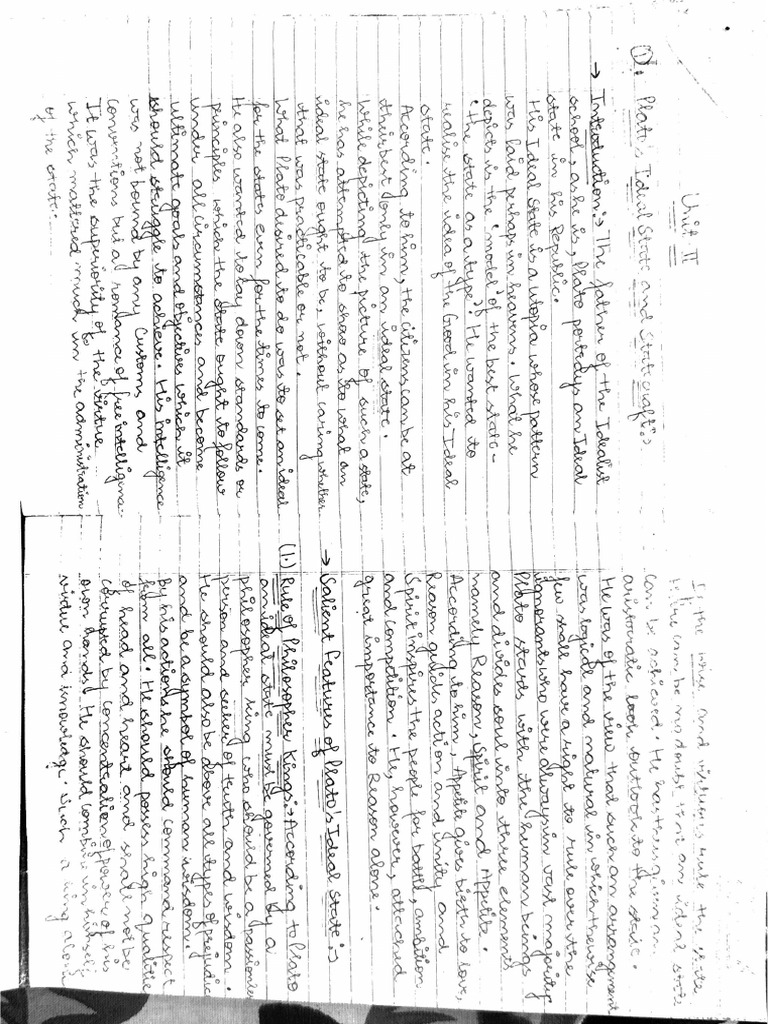 Unit II
(1). Plato's Ideal State and Statecraft:>
→ Introduction:> The father of the Idealist
school as he is, Plato portrays an Ideal
state in his Republic.
His Ideal State is a utopia whose pattern
was laid perhaps in heavens. What he
depicts is the 'model' of the best state-
'the state as a type'. He wanted to
realise the idea of the Good in his Ideal
state.
According to him, the citizens can be at
their best only in an ideal state.
While depicting the picture of such a state,
he has attempted to show as to what an
ideal state ought to be, without caring whether
that was practicable or not.
What Plato desired to do was to set an ideal
for the states even for the times to come.
He also wanted to lay down standards or
principles which the state ought to follow
under all circumstances and become
ultimate goals and objectives which it
should struggle to achieve. His intelligence
was not bound by any customs and
conventions but a romance of free intelligence
It was the superiority of the virtue
which mattered much in the administration
of the state.
If the wise and virtuous rule the state,
there can be no doubt that an ideal state
can be achieved. He has thus given an
aristocratic look outlook to the state.
He was of the view that such an arrangement
was logical and natural in which the wise
few shall have a right to rule over the
ignorants who were always in vast majority
Plato starts with the human beings
and divides soul into three elements
namely Reason, Spirit and Appetite.
According to him, Appetite gives birth to love,
Reason guides action and unity and
Spirit inspires the people for battle, ambition
and competition. He, however, attached
great importance to Reason alone.
→ Salient Features of Plato's Ideal State:>
(1.) Rule of Philosopher Kings:> According to Plato
an ideal state must be governed by a
philosopher king who should be a passionless
person and seeker of truth and wisdom.
He should also be above all types of prejudice
and be a symbol of human wisdom.
By his actions he should command respect
from all. He should posses high qualities
of head and heart and shall not be
corrupted by concentration of power of his
own hands. He should combine in himself
virtue and knowledge. Such a king alone